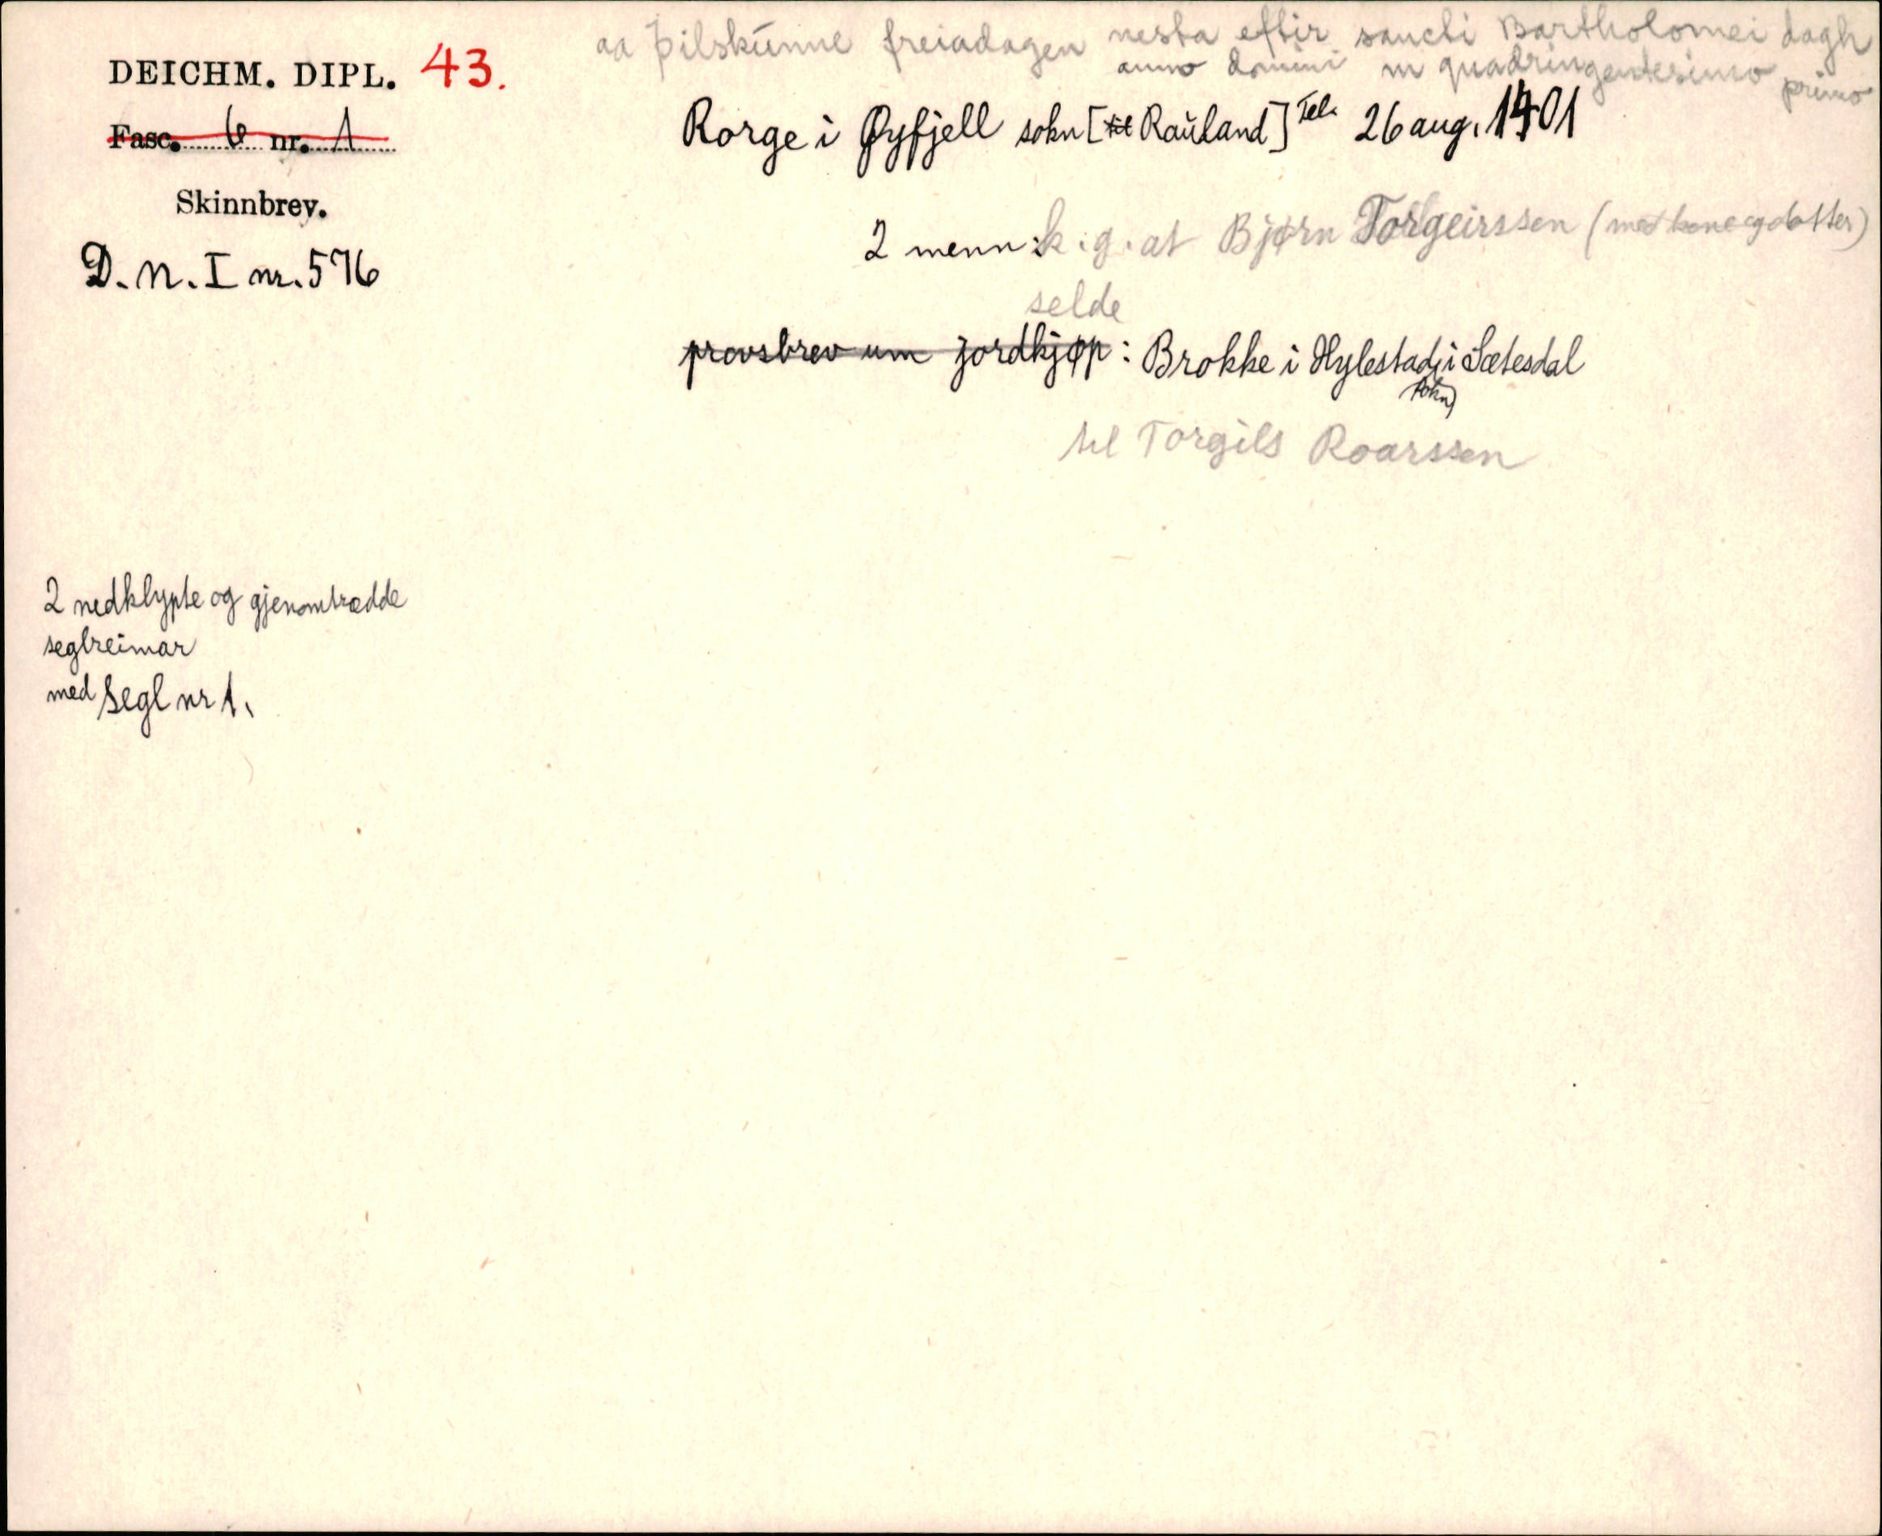 aa þilskunne freiadagen nesta eftir sancti Bartholomei dagh
anno domini m quadringentesimo primo
DEICHM. DIPL. 43.
Fasc. 6 nr. 1
Skinnbrev.
D.N. I nr. 576
Rorge i Øyfjell sokn [til Rauland] Tel. 26 aug. 1401
2 menn: k.g. at Bjørn Torgeirssen (med kone og dotter)
selde
provsbrev um jordkjøp: Brokke i Hylestad i Sætesdal
sokn)
til Torgils Roarssen
2 nedklypte og gjenomtrædde
seglreimar
med segl nr 1.